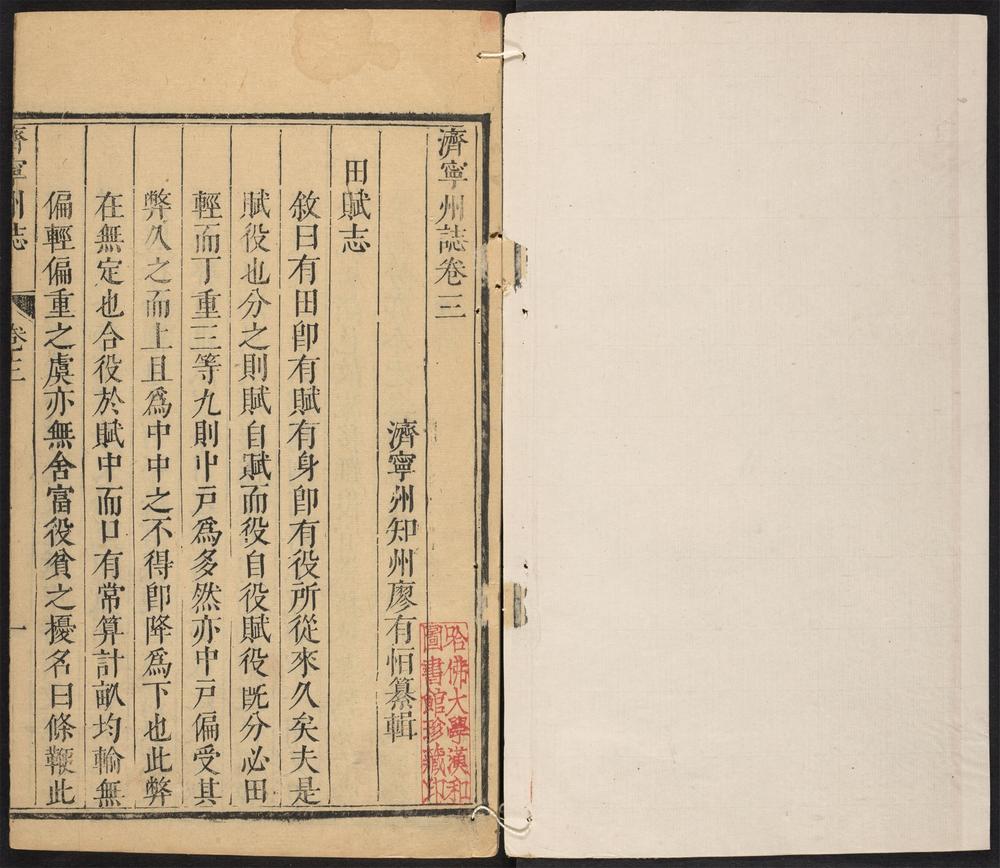 濟寧州誌卷三
濟寧州知州廖有恒纂輯
田賦志
敘曰有田卽有賦有身卽有役所從來久矣夫是
賦役也分之則賦自賦而役自役賦役旣分必田
輕而丁重三等九則中戸爲多然亦中戸偏受其
弊久之而上且爲中中之不得卽降爲下也此弊
在無定也合役於賦中而口有常算計畝均輸無
偏輕偏重之虞亦無舍富役貧之擾名曰條鞭此
濟寧州誌
卷三
一
哈佛大學漢和
圖書館珍藏印